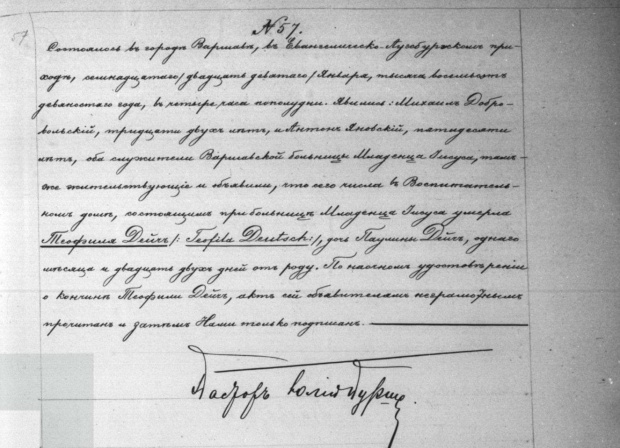 57
№ 57.
Состоялось въ городѣ Варшавѣ, въ Евангелическо-Аугсбургскомъ при-
ходѣ, семнадцатаго/двадцать девятаго/Января, тысяча восемьсотъ
девяностаго года, въ четыре часа пополудни. Явились: Михаилъ Добро-
вольскій, тридцати двухъ лѣтъ, и Антонъ Яновскій, пятидесяти
лѣтъ, оба служители Варшавской больницы Младенца Іисуса, тамъ-
же жительствующіе и объявили, что сего числа въ Воспитатель-
номъ домѣ, состоящимъ при больницѣ Младенца Іисуса умерла
Теофиля Дейчъ /:Teofila Deutsch:/, дочь Паулины Дейчъ, однаго
мѣсяца и двадцать двухъ дней отъ роду. По наочномъ удостовѣреніи
о кончинѣ Теофили Дейчъ, актъ сей объявителямъ неграмотнымъ
прочитанъ и затѣмъ Нами только подписанъ.
Пасторъ